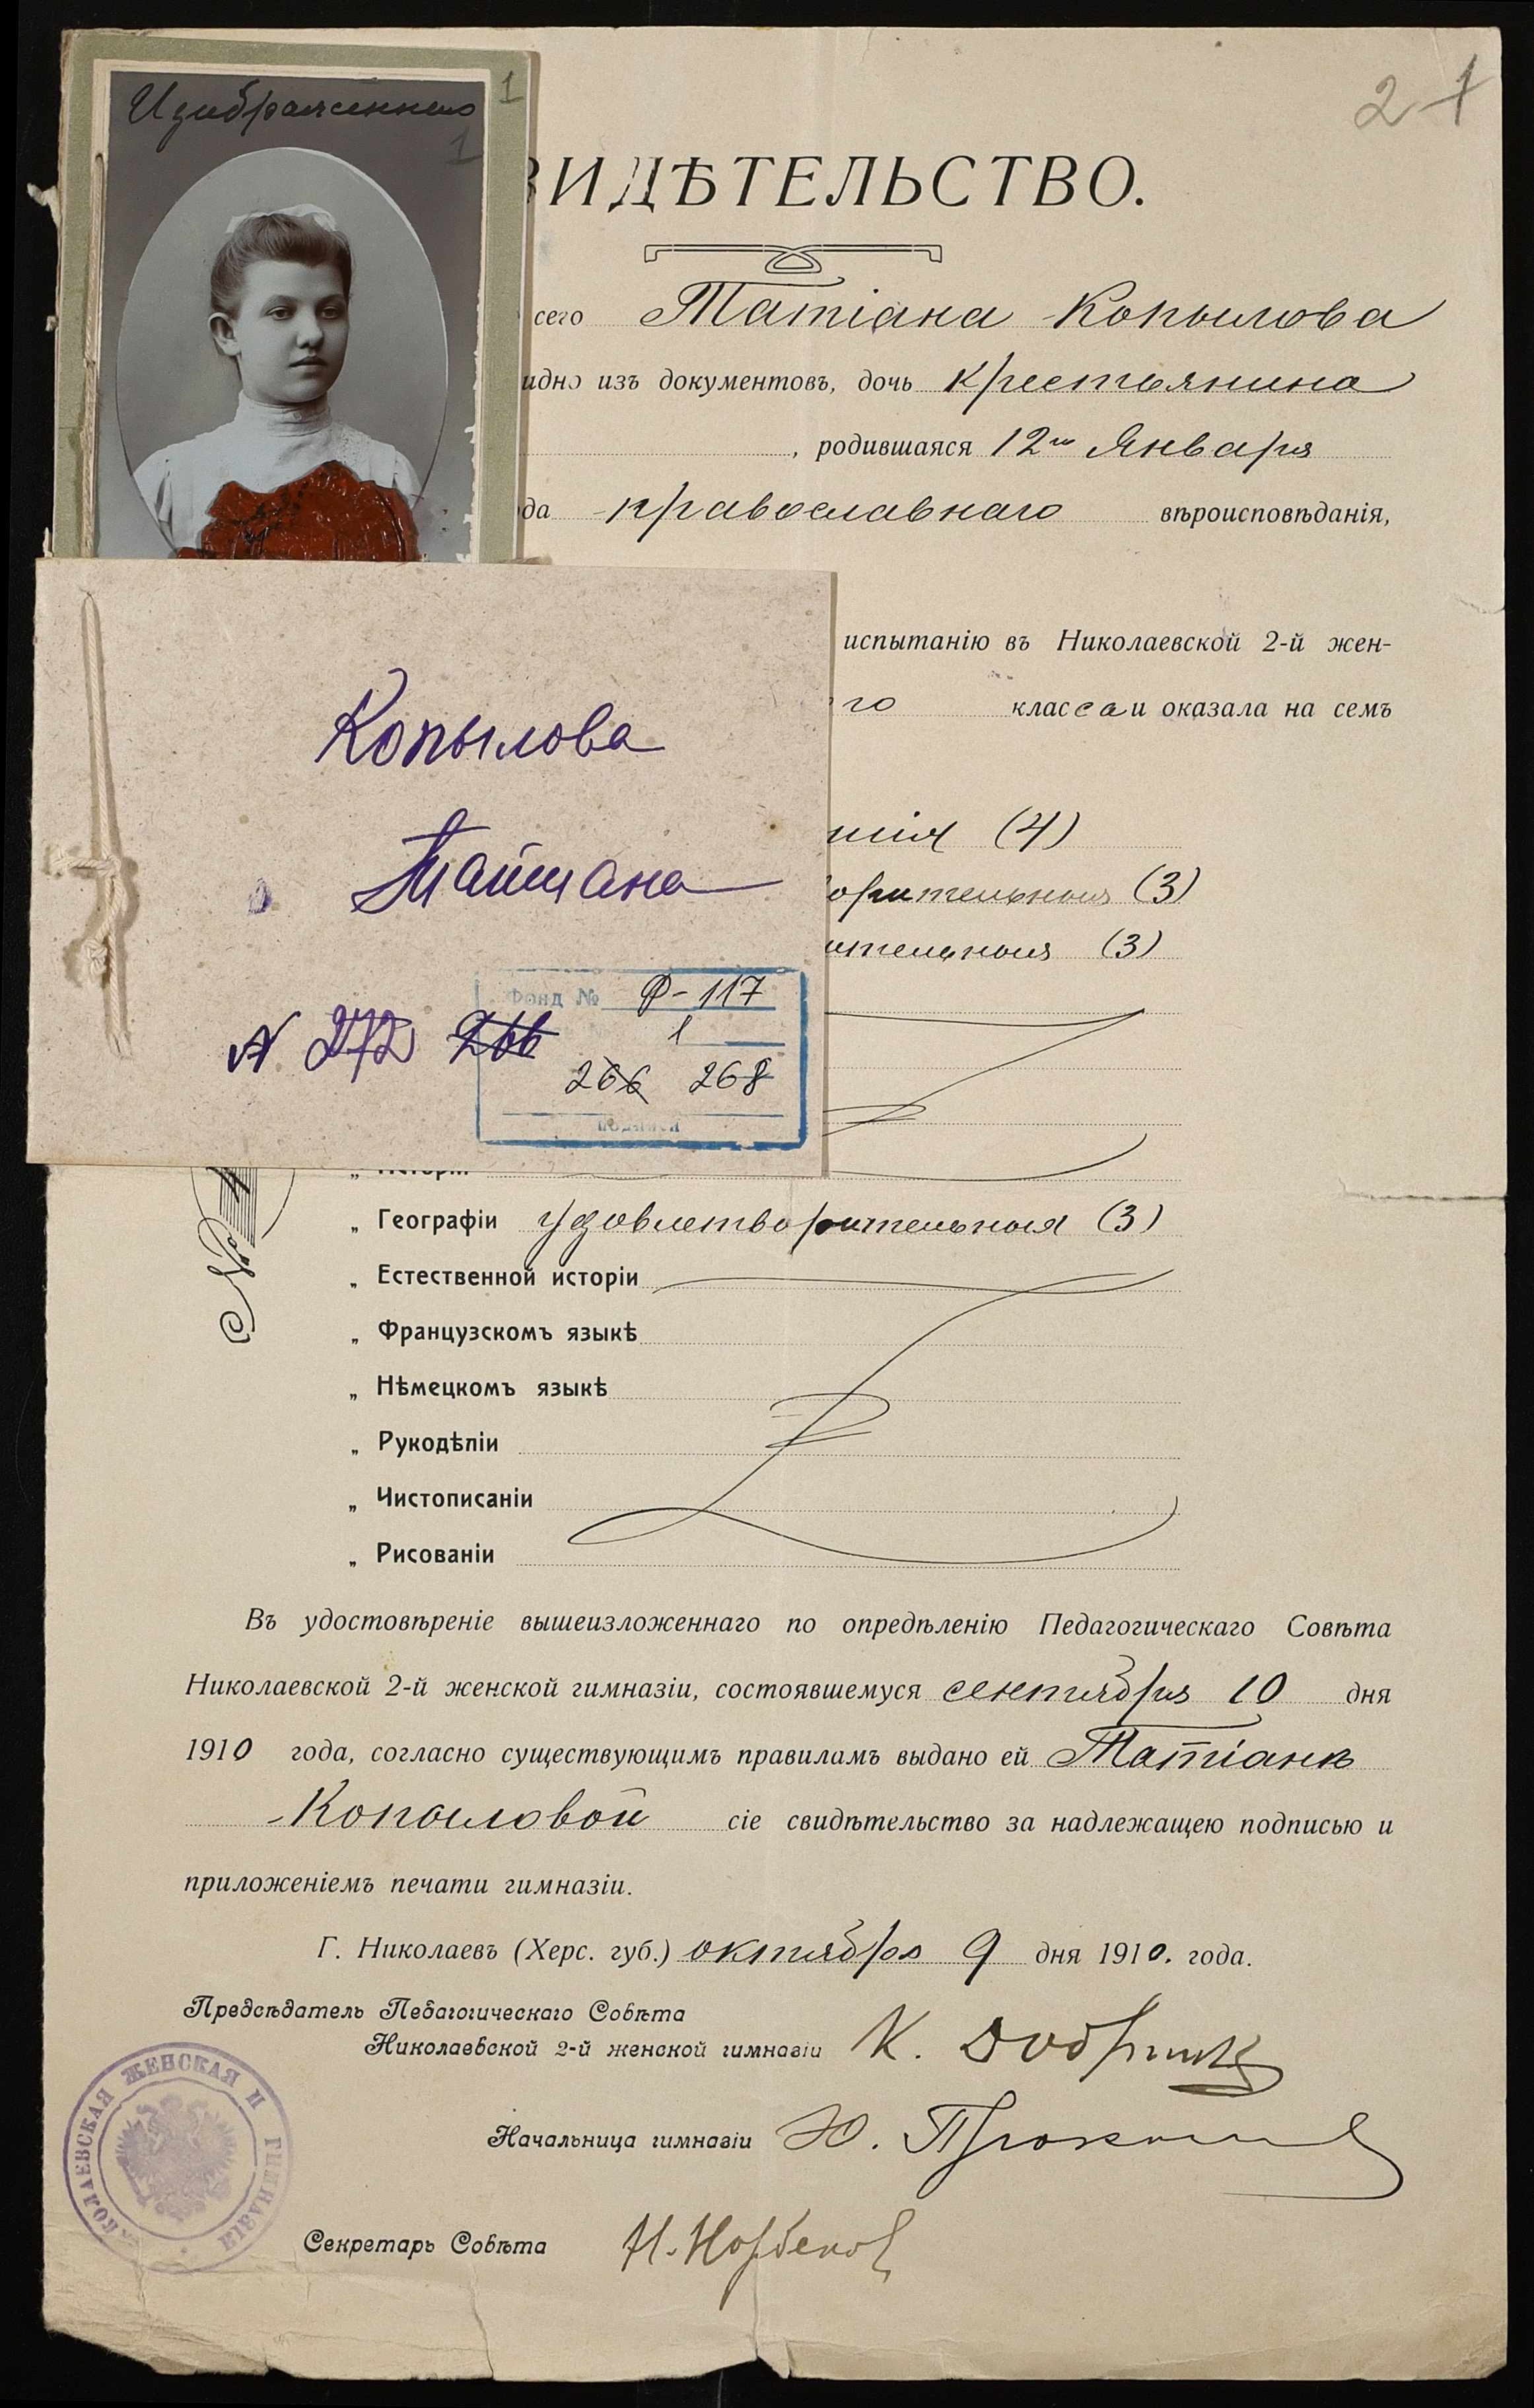 Изображенная
1
1
2 1
ВИДѢТЕЛЬСТВО.
сего Татіана Копылова
идно изъ документовъ, дочь крестьянина
, родившаяся 12го Января
да православнаго вѣроисповѣданія,
испытанію въ Николаевской 2-й жен-
го класса и оказала на семъ
шія (4)
орительныя (3)
ительныя (3)
Копылова
Татиана
N 272 266
Фонд № Ф-117
1
266 268
Исторіи
„ Географіи удовлетворительныя (3)
„ Естественной исторіи
„ Французскомъ языкѣ
„ Нѣмецкомъ языкѣ
„ Рукодѣліи
„ Чистописаніи
„ Рисованіи
Въ удостовѣреніе вышеизложеннаго по опредѣленію Педагогическаго Совѣта
Николаевской 2-й женской гимназіи, состоявшемуся сентября 10 дня
1910 года, согласно существующимъ правиламъ выдано ей Татіанѣ
Копыловой сіе свидѣтельство за надлежащею подписью и
приложеніемъ печати гимназіи.
Г. Николаевъ (Херс. губ.) октября 9 дня 1910. года.
Предсѣдатель Педагогическаго Совѣта
Николаевской 2-й женской гимназіи К.
Начальница гимназіи Ю.
Секретарь Совѣта Н.
НИКОЛАЕВСКАЯ ЖЕНСКАЯ II ГИМНАЗІЯ